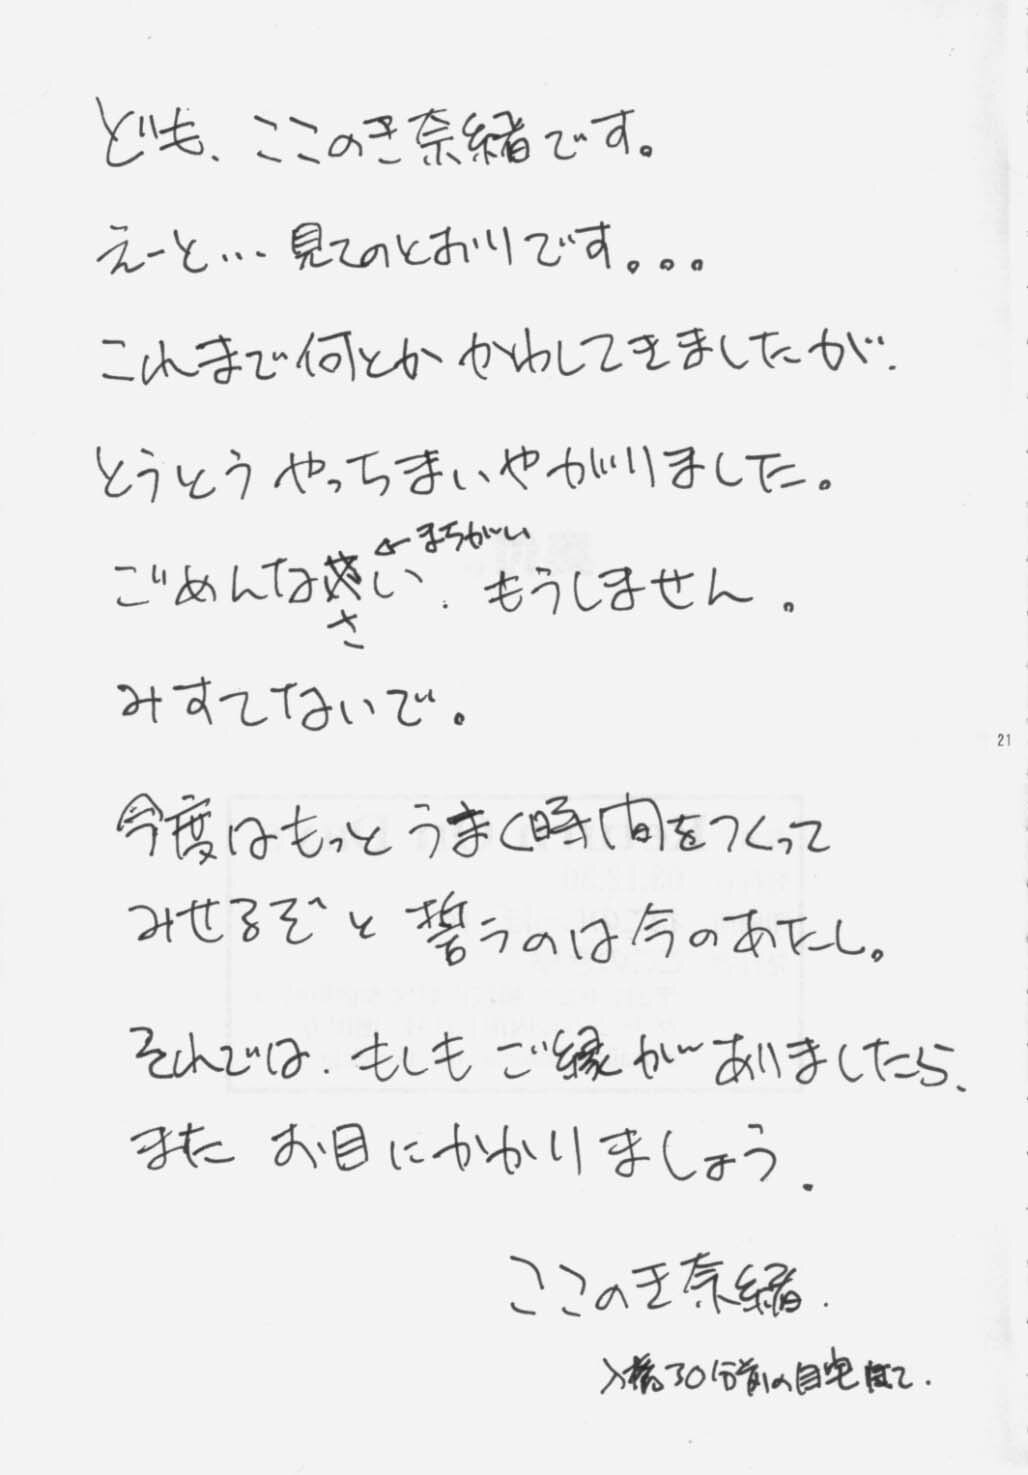 ども、ここのき奈緒です。
えーと…見てのとおりです。。。
これまで何とかかわしてきましたが、
とうとうやっちまいやがりました。
←まちがい
ごめんない、もうしません。
さ
みすてないで。
21
今度はもっとうまく時間をつくって
みせるぞと誓うのは今のあたし。
それでは、もしもご縁がありましたら、
またお目にかかりましょう。
ここのき奈緒.
入稿30分前の自宅にて.